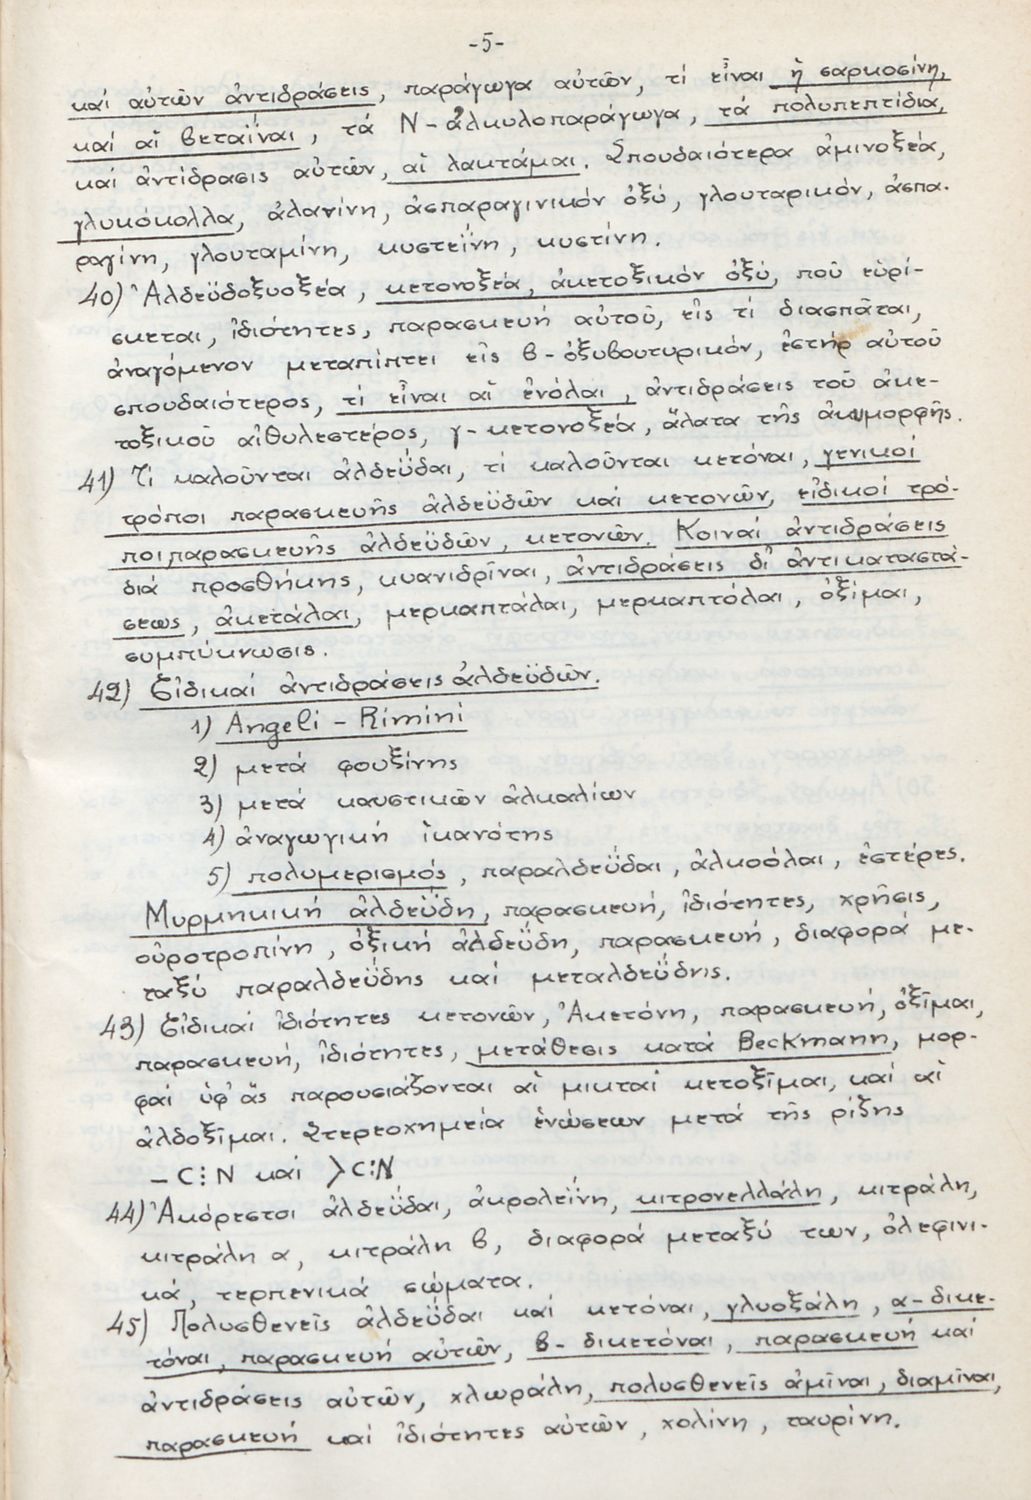 -5-
καί αὐτῶν ἀντιδράσεις, παράγωγα αὐτῶν, τί εἶναι ἡ σαρκοσίνη,
καί αἱ βεταΐναι, τά Ν-ἀλκυλοπαράγωγα, τά πολυπεπτίδια,
καί ἀντίδρασις αὐτῶν, αἱ λακτάμαι. Σπουδαιότερα ἀμινοξέα,
γλυκόκολλα, ἀλανίνη, ἀσπαραγινικόν ὀξύ, γλουταρικόν, ἀσπα-
ραγίνη, γλουταμίνη, κυστεΐνη, κυστίνη.
40) Ἀλδεϋδοξυοξέα, κετονοξέα, ἀκετοξικόν ὀξύ, ποῦ εὑρί-
σκεται, ἰδιότητες, παρασκευή αὐτοῦ, εἰς τί διασπᾶται,
ἀναγόμενον μεταπίπτει εἰς β-ὀξυβουτυρικόν, ἐστήρ αὐτοῦ
σπουδαιότερος, τί εἶναι αἱ ἐνόλαι, ἀντιδράσεις τοῦ ἀκε-
τοξικοῦ αἰθυλεστέρος, γ-κετονοξέα, ἅλατα τῆς ἀκιμορφῆς.
41) Τί καλοῦνται ἀλδεΰδαι, τί καλοῦνται κετόναι, γενικοί
τρόποι παρασκευῆς ἀλδεϋδῶν καί κετονῶν, εἰδικοί τρό-
ποι παρασκευῆς ἀλδεϋδῶν, κετονῶν. Κοιναί ἀντιδράσεις
διά προσθήκης, κυανιδρῖναι, ἀντιδράσεις δι' ἀντικαταστά-
σεως, ἀκετάλαι, μερκαπτάλαι, μερκαπτόλαι, ὀξίμαι,
συμπύκνωσις.
42) Εἰδικαί ἀντιδράσεις ἀλδεϋδῶν.
1) Angeli - Rimini
2) μετά φουξίνης
3) μετά καυστικῶν ἀλκαλίων
4) ἀναγωγική ἱκανότης
5) πολυμερισμός, παραλδεΰδαι, ἀλκοόλαι, ἐστέρες.
Μυρμηκική ἀλδεΰδη, παρασκευή, ἰδιότητες, χρῆσις,
οὐροτροπίνη, ὀξική ἀλδεΰδη, παρασκευή, διαφορά με-
ταξύ παραλδεΰδης καί μεταλδεΰδης.
43) Εἰδικαί ἰδιότητες κετονῶν, Ἀκετόνη, παρασκευή, ὀξῖμαι,
παρασκευή, ἰδιότητες, μετάθεσις κατά Beckmann, μορ-
φαί ὑφ' ἅς παρουσιάζονται αἱ μικταί κετοξῖμαι, καί αἱ
ἀλδοξῖμαι. Στερεοχημεία ἑνώσεων μετά τῆς ρίζης
-C⋮N καί >C:N
44) Ἀκόρεστοι ἀλδεΰδαι, ἀκρολεΐνη, κιτρονελλάλη, κιτράλη,
κιτράλη α, κιτράλη β, διαφορά μεταξύ των, ὀλεφινι-
κά, τερπενικά σώματα.
45) Πολυσθενεῖς ἀλδεΰδαι καί κετόναι, γλυοξάλη, α-δικε-
τόναι, παρασκευή αὐτῶν, β-δικετόναι, παρασκευή καί
ἀντιδράσεις αὐτῶν, χλωράλη, πολυσθενεῖς ἀμῖναι, διαμῖναι,
παρασκευή καί ἰδιότητες αὐτῶν, χολίνη, ταυρίνη.